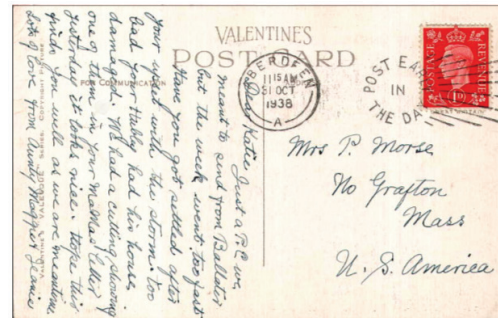 VALENTINES
POST CARD
FOR COMMUNICATION
ABERDEEN
11 15 AM
31 OCT
1938
A
POST EARLY
IN
THE DAY
POSTAGE
REVENUE
1D
Dear Katie Just a P.C. we
meant to send from Ballater
but the week went too fast
Have you got settled after
your upset with the storm. too
bad your Hubby had his home
damaged. We had a cutting showing
one of them in your Mothers letter
yesterday it looks nice. Hope this
finds you well as we are meantime
Lots of love from Aunty Maggie & Jeanie
Mrs P. Morse
No Grafton
Mass
U. S. America